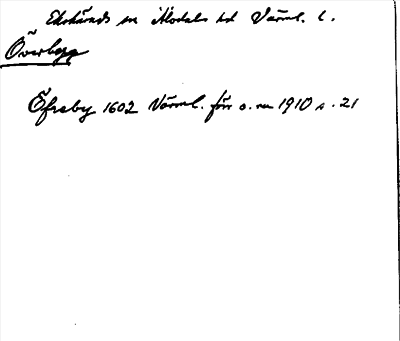 Ekshärads sn Älvdals hd Värml. l.
Överbyn
Öfreby 1602 Värml. förr o. nu 1910 s. 21